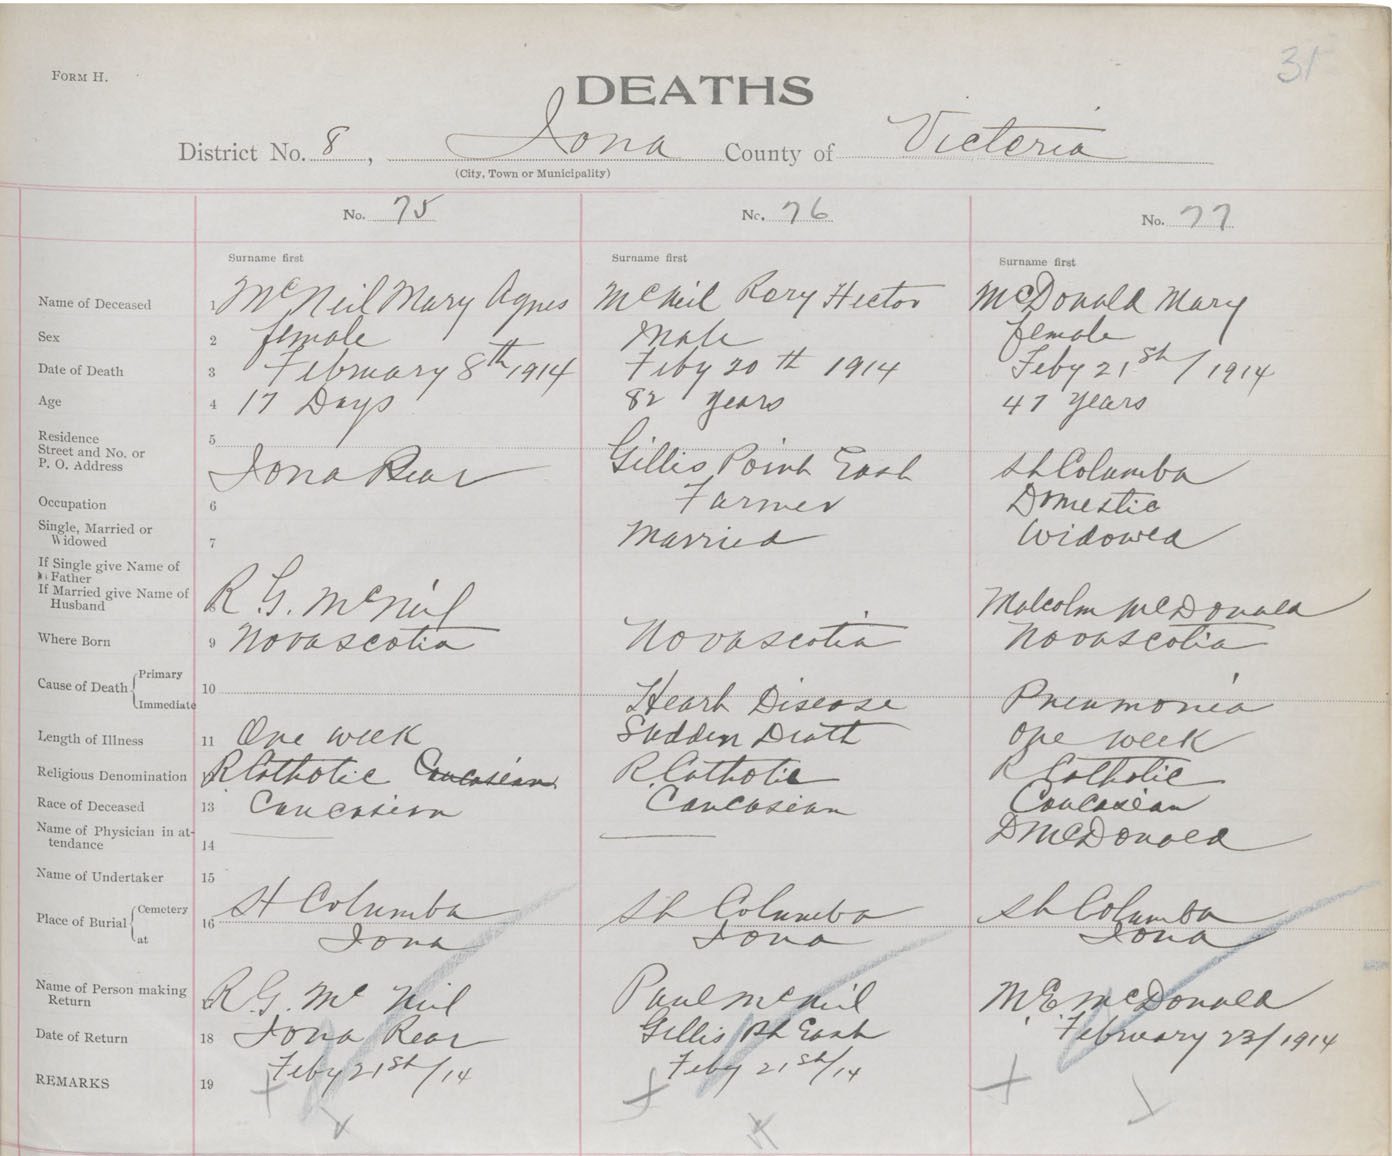 31
FORM H.
DEATHS
District No. 8, Iona County of Victoria
(City, Town or Municipality)
No. 75 No. 76 No. 77
Surname first Surname first Surname first
Name of Deceased 1 McNeil Mary Agnes McNeil Rory Hector McDonald Mary
Sex 2 female Male female
Date of Death 3 February 8th 1914 Feby 20th 1914 Feby 21st/1914
Age 4 17 Days 82 years 47 years
Residence 5
Street and No. or
P. O. Address Iona Rear Gillis Point East St Columba
Occupation 6 Farmer Domestic
Single, Married or
Widowed 7 Married Widowed
If Single give Name of
Father
If Married give Name of
Husband 8 R. G. McNeil Malcolm McDonald
Where Born 9 Novascotia Novascotia Novascotia
Cause of Death Primary
Immediate 10 Heart Disease Pneumonia
Length of Illness 11 One week Sudden Death One week
Religious Denomination R Catholic Caucasian R. Catholic R Catholic
Race of Deceased 13 Caucasian Caucasian Caucasian
Name of Physician in at-
tendance 14 D McDonald
Name of Undertaker 15
Place of Burial Cemetery 16 St Columba St Columba St Columba
at Iona Iona Iona
Name of Person making
Return R. G. McNeil Paul McNeil M. E. McDonald
Date of Return 18 Iona Rear Gillis Pt East February 23/1914
Feby 21st/14 Feby 21st/14
REMARKS 19